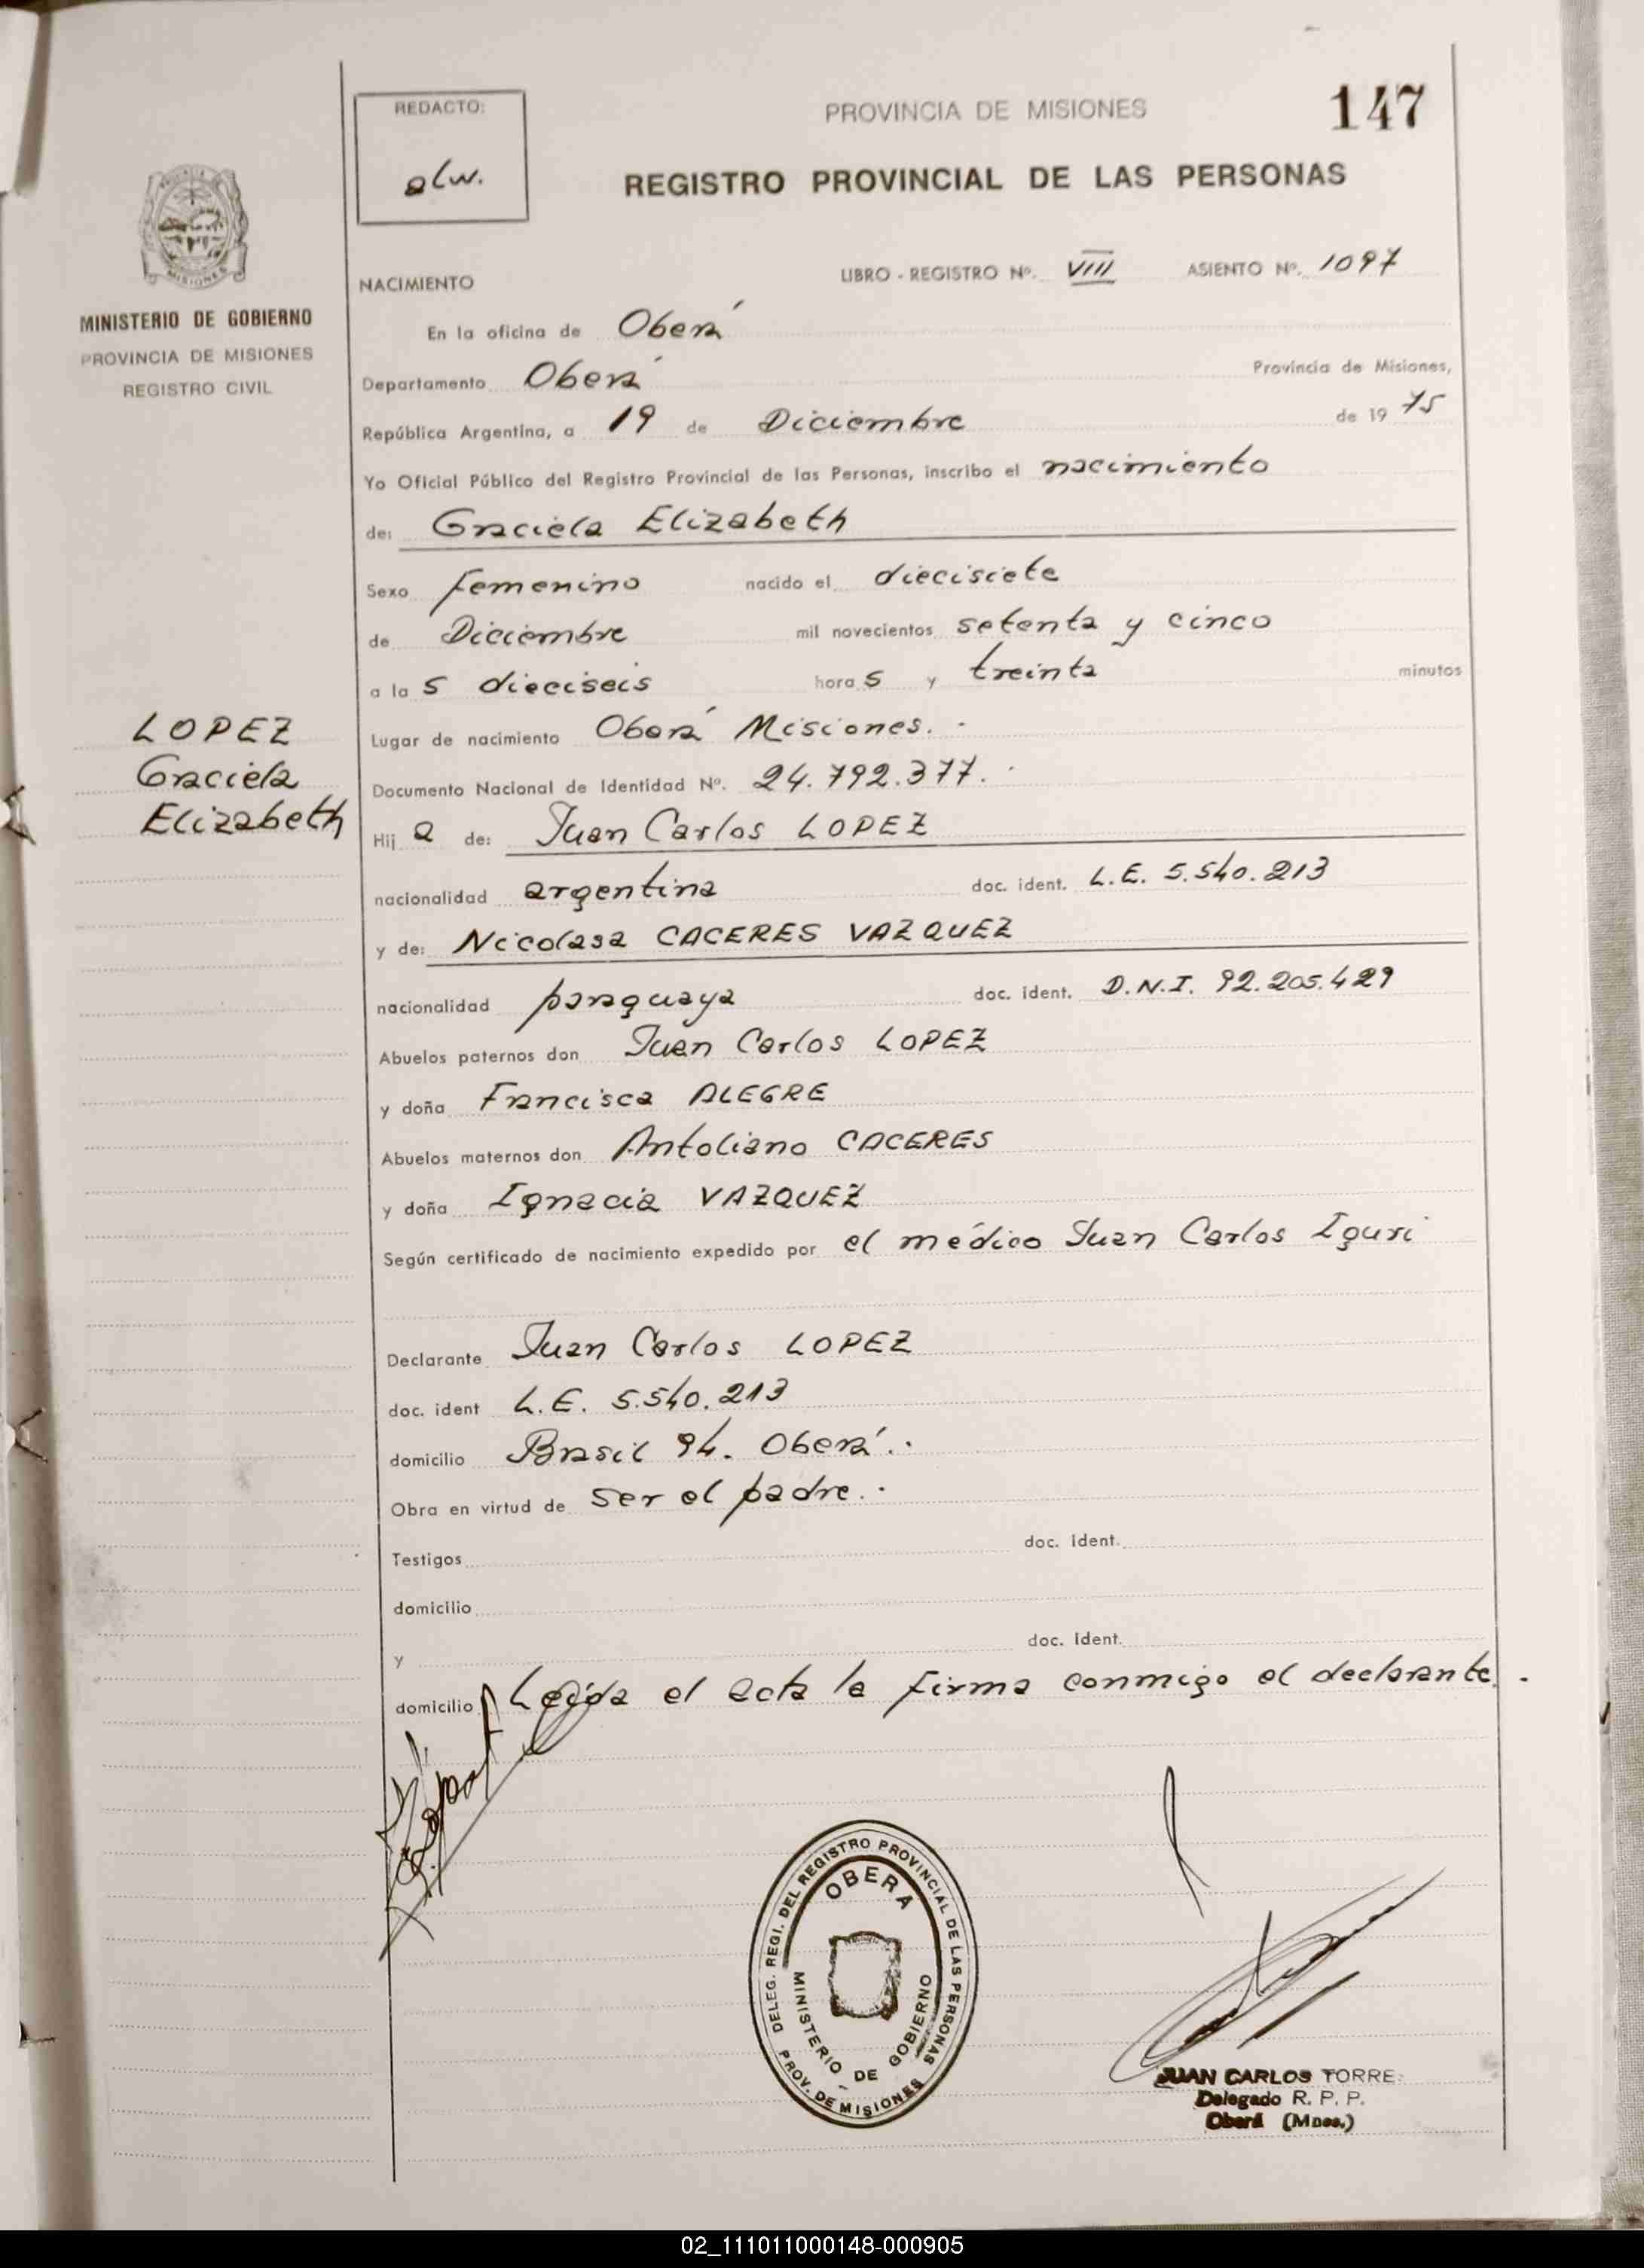 REDACTO:
alw.
PROVINCIA DE MISIONES
147
REGISTRO PROVINCIAL DE LAS PERSONAS
MISIONES
MINISTERIO DE GOBIERNO
PROVINCIA DE MISIONES
REGISTRO CIVIL
NACIMIENTO
LIBRO - REGISTRO Nº. VIII ASIENTO Nº. 1097
En la oficina de Oberá
Departamento Oberá Provincia de Misiones,
República Argentina, a 19 de Diciembre de 19 75
Yo Oficial Público del Registro Provincial de las Personas, inscribo el nacimiento
de: Graciela Elizabeth
Sexo femenino nacido el dieciseete
de Diciembre mil novecientos setenta y cinco
a la s dieciseis hora s y treinta minutos
Lugar de nacimiento Oberá Misiones. -
LOPEZ
Graciela
Elizabeth
Documento Nacional de Identidad Nº. 24.792.377. -
Hij a de: Juan Carlos LOPEZ
nacionalidad argentina doc. ident. L.E. 5.540.213
y de: Nicolasa CACERES VAZQUEZ
nacionalidad paraguaya doc. ident. D.N.I. 92.205.429
Abuelos paternos don Juan Carlos LOPEZ
y doña Francisca ALEGRE
Abuelos maternos don Antoliano CACERES
y doña Ignacia VAZQUEZ
Según certificado de nacimiento expedido por el médico Juan Carlos Iguri
Declarante Juan Carlos LOPEZ
doc. ident L.E. 5.540.213
domicilio Brasil 94. Oberá. -
Obra en virtud de ser el padre. -
Testigos doc. ident.
domicilio
y doc. ident.
domicilio Leída el acta la firma conmigo el declarante. -
DELEG. REGI. DEL REGISTRO PROVINCIAL DE LAS PERSONAS
OBERA
MINISTERIO DE GOBIERNO
PROV. DE MISIONES
JUAN CARLOS TORRE
Delegado R. P. P.
Oberá (Mnes.)
02_111011000148-000905